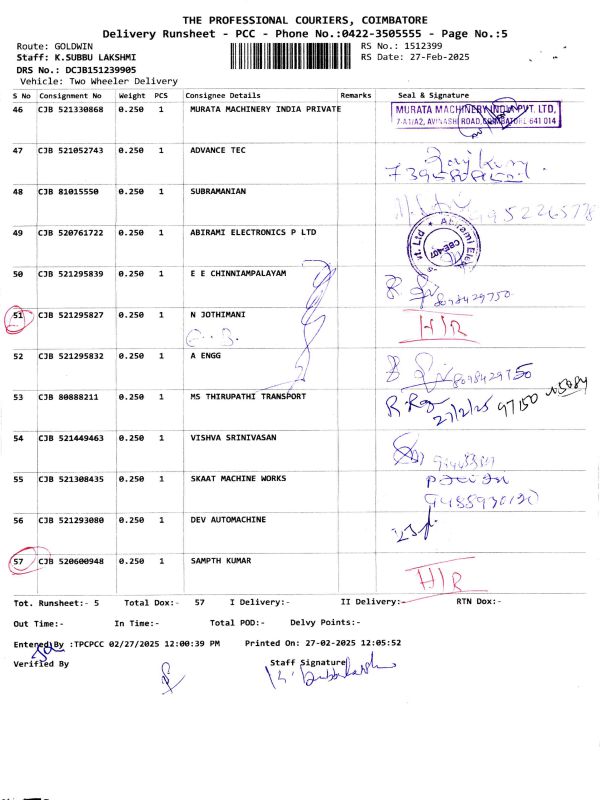 THE PROFESSIONAL COURIERS, COIMBATORE
Delivery Runsheet - PCC - Phone No.:0422-3505555 - Page No.:5
Route: GOLDWIN
RS No.: 1512399
Staff: K.SUBBU LAKSHMI
RS Date: 27-Feb-2025
DRS No.: DCJB151239905
Vehicle: Two Wheeler Delivery
S No Consignment No Weight PCS Consignee Details Remarks Seal & Signature
46 CJB 521330868 0.250 1 MURATA MACHINERY INDIA PRIVATE
MURATA MACHINERY INDIA PVT. LTD,
7-A1/A2, AVINASHI ROAD, COIMBATORE 641 014
47 CJB 521052743 0.250 1 ADVANCE TEC
48 CJB 81015550 0.250 1 SUBRAMANIAN
49 CJB 520761722 0.250 1 ABIRAMI ELECTRONICS P LTD
CBE-407
50 CJB 521295839 0.250 1 E E CHINNIAMPALAYAM
8098429750
51 CJB 521295827 0.250 1 N JOTHIMANI H/R
52 CJB 521295832 0.250 1 A ENGG
8098429750
53 CJB 80888211 0.250 1 MS THIRUPATHI TRANSPORT
27/2/25 97150
54 CJB 521449463 0.250 1 VISHVA SRINIVASAN
55 CJB 521308435 0.250 1 SKAAT MACHINE WORKS
56 CJB 521293080 0.250 1 DEV AUTOMACHINE
57 CJB 520600948 0.250 1 SAMPTH KUMAR H/R
Tot. Runsheet:- 5 Total Dox:- 57 I Delivery:- II Delivery:- RTN Dox:-
Out Time:- In Time:- Total POD:- Delvy Points:-
Entered By :TPCPCC 02/27/2025 12:00:39 PM Printed On: 27-02-2025 12:05:52
Verified By Staff Signature